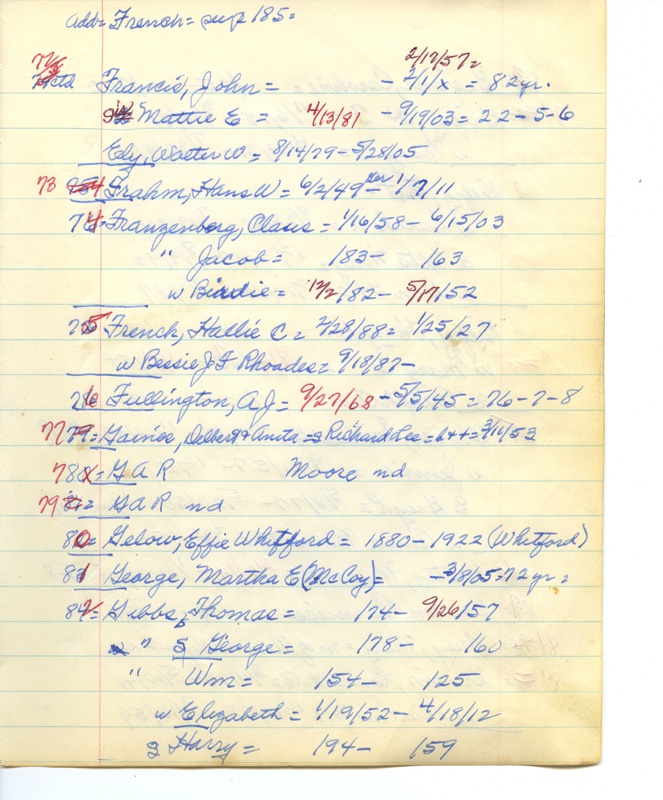 add = French = sup 185 =
2/17/57 =
77/3 Francis, John = - 2/1/x = 82 yr.
w Mattie E = 4/13/81 - 9/19/03 = 22-5-6
Ely, Walter W = 8/14/79 - 5/28/05
73 Frahm, Hans W = 6/2/49 - 1/7/11
74 = Franzenberg, Claus = 1/16/58 - 6/15/03
" Jacob = 183 - 163
w Birdie = 12/2/82 - 5/17/52
75 French, Hallie C = 2/28/88 = 1/25/27
w Bessie J F Rhoades = 9/18/87 -
76 Fullington, A J = 9/27/68 - 5/5/45 = 76-7-8
77 = Gaines, Delbert & Anita = s Richard Lee = b++ = 3/11/53
78 = G A R Moore nd
79 = G A R nd
80 = Gelow, Effie Whitford = 1880 - 1922 (Whitford)
81 George, Martha E (McCoy) = - 3/8/05 = 72 yr =
82 = Gibbs, Thomas = 174 - 9/26/57
" S George = 178 - 160
" Wm = 154 - 125
w Elizabeth = 1/19/52 - 4/18/12
s Harry = 194 - 159